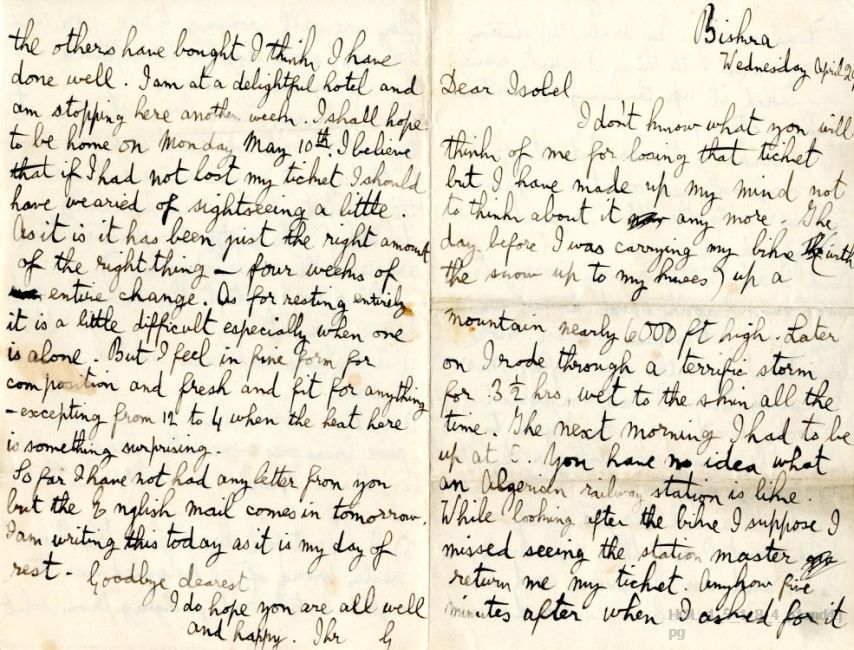 Biskra
Wednesday April 2
Dear Isobel
I don't know what you will
think of me for losing that ticket
but I have made up my mind not
to think about it any more. The
day before I was carrying my bike (with
the snow up to my knees) up a
mountain nearly 6000 ft high. Later
on I rode through a terrific storm
for 3½ hrs, wet to the skin all the
time. The next morning I had to be
up at 5. You have no idea what
an Algerian railway station is like.
While looking after the bike I suppose I
missed seeing the station master
return me my ticket. Anyhow five
minutes after when I asked for it
the others have bought I think I have
done well. I am at a delightful hotel and
am stopping here another week. I shall hope
to be home on Monday May 10th. I believe
that if I had not lost my ticket I should
have wearied of sightseeing a little.
As it is it has been just the right amount
of the right thing – four weeks of
entire change. As for resting entirely
it is a little difficult especially when one
is alone. But I feel in fine form for
composition and fresh and fit for anything
– excepting from 12 to 4 when the heat here
is something surprising.
So far I have not had any letter from you
but the English mail comes in tomorrow.
I am writing this today as it is my day of
rest – Goodbye dearest
I do hope you are all well
and happy. Thr G